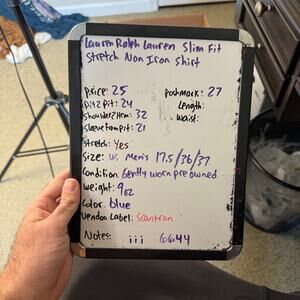 Lauren Ralph Lauren Slim Fit
Stretch Non Iron Shirt
price: 25
postmark: 27
pit 2 pit: 24
Length:
shoulder 2 Hem: 32
Waist:
Sleeve from pit: 21
Stretch: Yes
Size: US Men's 17.5/36/37
Condition: Gently worn pre owned
Weight: 9oz
Color: blue
Vendoo Label: Scantron
Notes: iii 6644